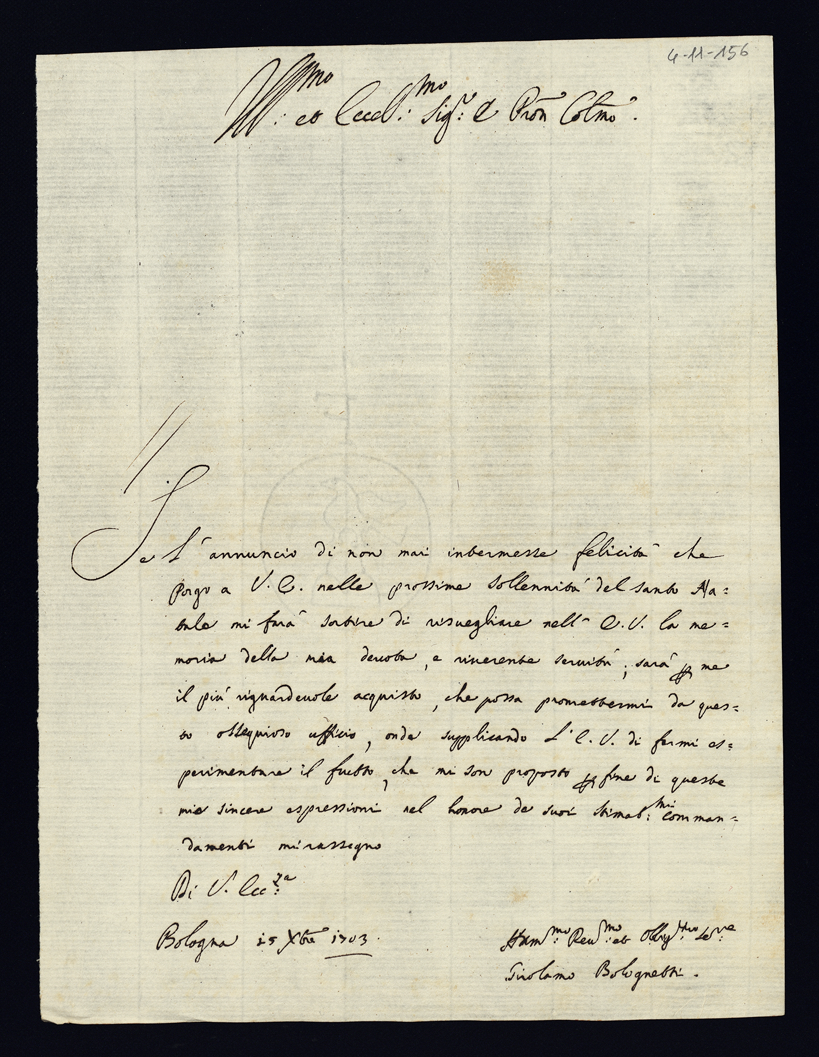 4-11-156
Ill:mo et Ecc:mo Sig:r e Pron Colmo.
Se l'annuncio di non mai intermesse felicità che
porgo a V. E. nelle prossime sollennità del santo Na=
tale mi farà sortire di risuegliare nell' E. V. la me=
moria della mia deuota, e riuerente seruitù, sarà p me
il più riguardeuole acquisto, che possa promettermi da ques=
to ossequioso ufficio, onde supplicando l'E. V. di farmi es=
perimentare il frutto, che mi son proposto p fine di queste
mie sincere espressioni nel honore de suoi stimat:mi comman=
damenti mi rassegno
Di V. Ecc:za
Bologna 15 Xbre 1703.
Hum:mo Deu:mo et Obbg:mo Se:re
Girolamo Bolognetti.